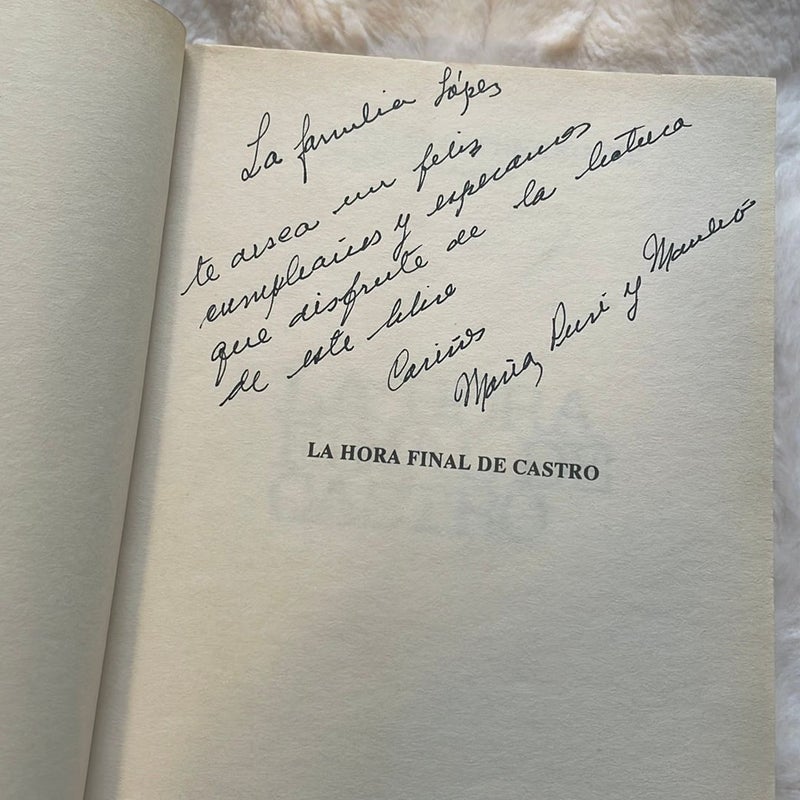 La familia López
te desea un feliz
cumpleaños y esperamos
que disfrute de la lectura
de este libro
Cariños
María, y
LA HORA FINAL DE CASTRO